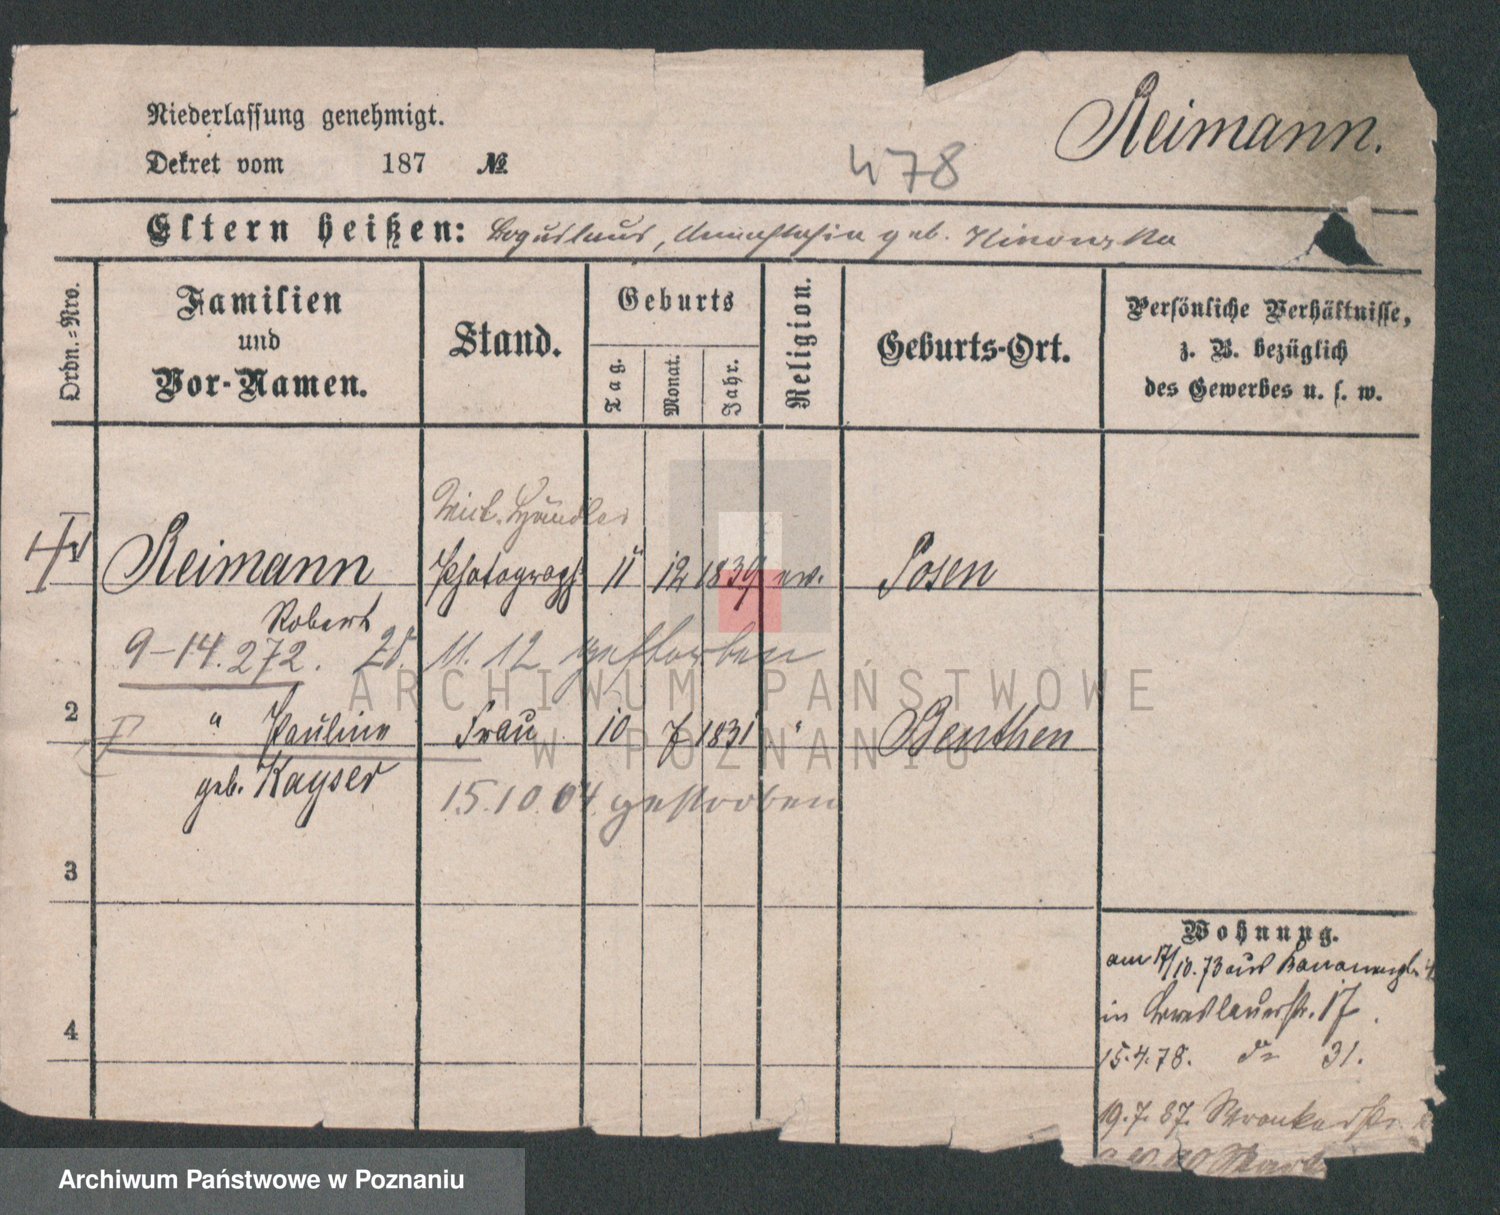 Niederlassung genehmigt.
Reimann.
Dekret vom 187 №
478
Eltern heißen: Boguslaus, Anastasia geb.
Ordn.-Nro.
Familien
und
Vor-Namen.
Stand.
Geburts
Tag.
Monat.
Jahr.
Religion.
Geburts-Ort.
Persönliche Verhältnisse,
z. B. bezüglich
des Gewerbes u. s. w.
Händler
1 Reimann Photograph 11 12 1839 ev. Posen
Robert
9-14.272. 11. 12 gestorben
2 " Pauline Frau 10 7 1831 " Beuthen
geb. Kayser
15.10.04. gestorben
3
4
Wohnung.
am 17/10.73 aus
in Breslauerstr. 17.
15.4.78. do 31.
19.7.87. Wronkerstr.
ARCHIWUM PAŃSTWOWE
W POZNANIU
Archiwum Państwowe w Poznaniu